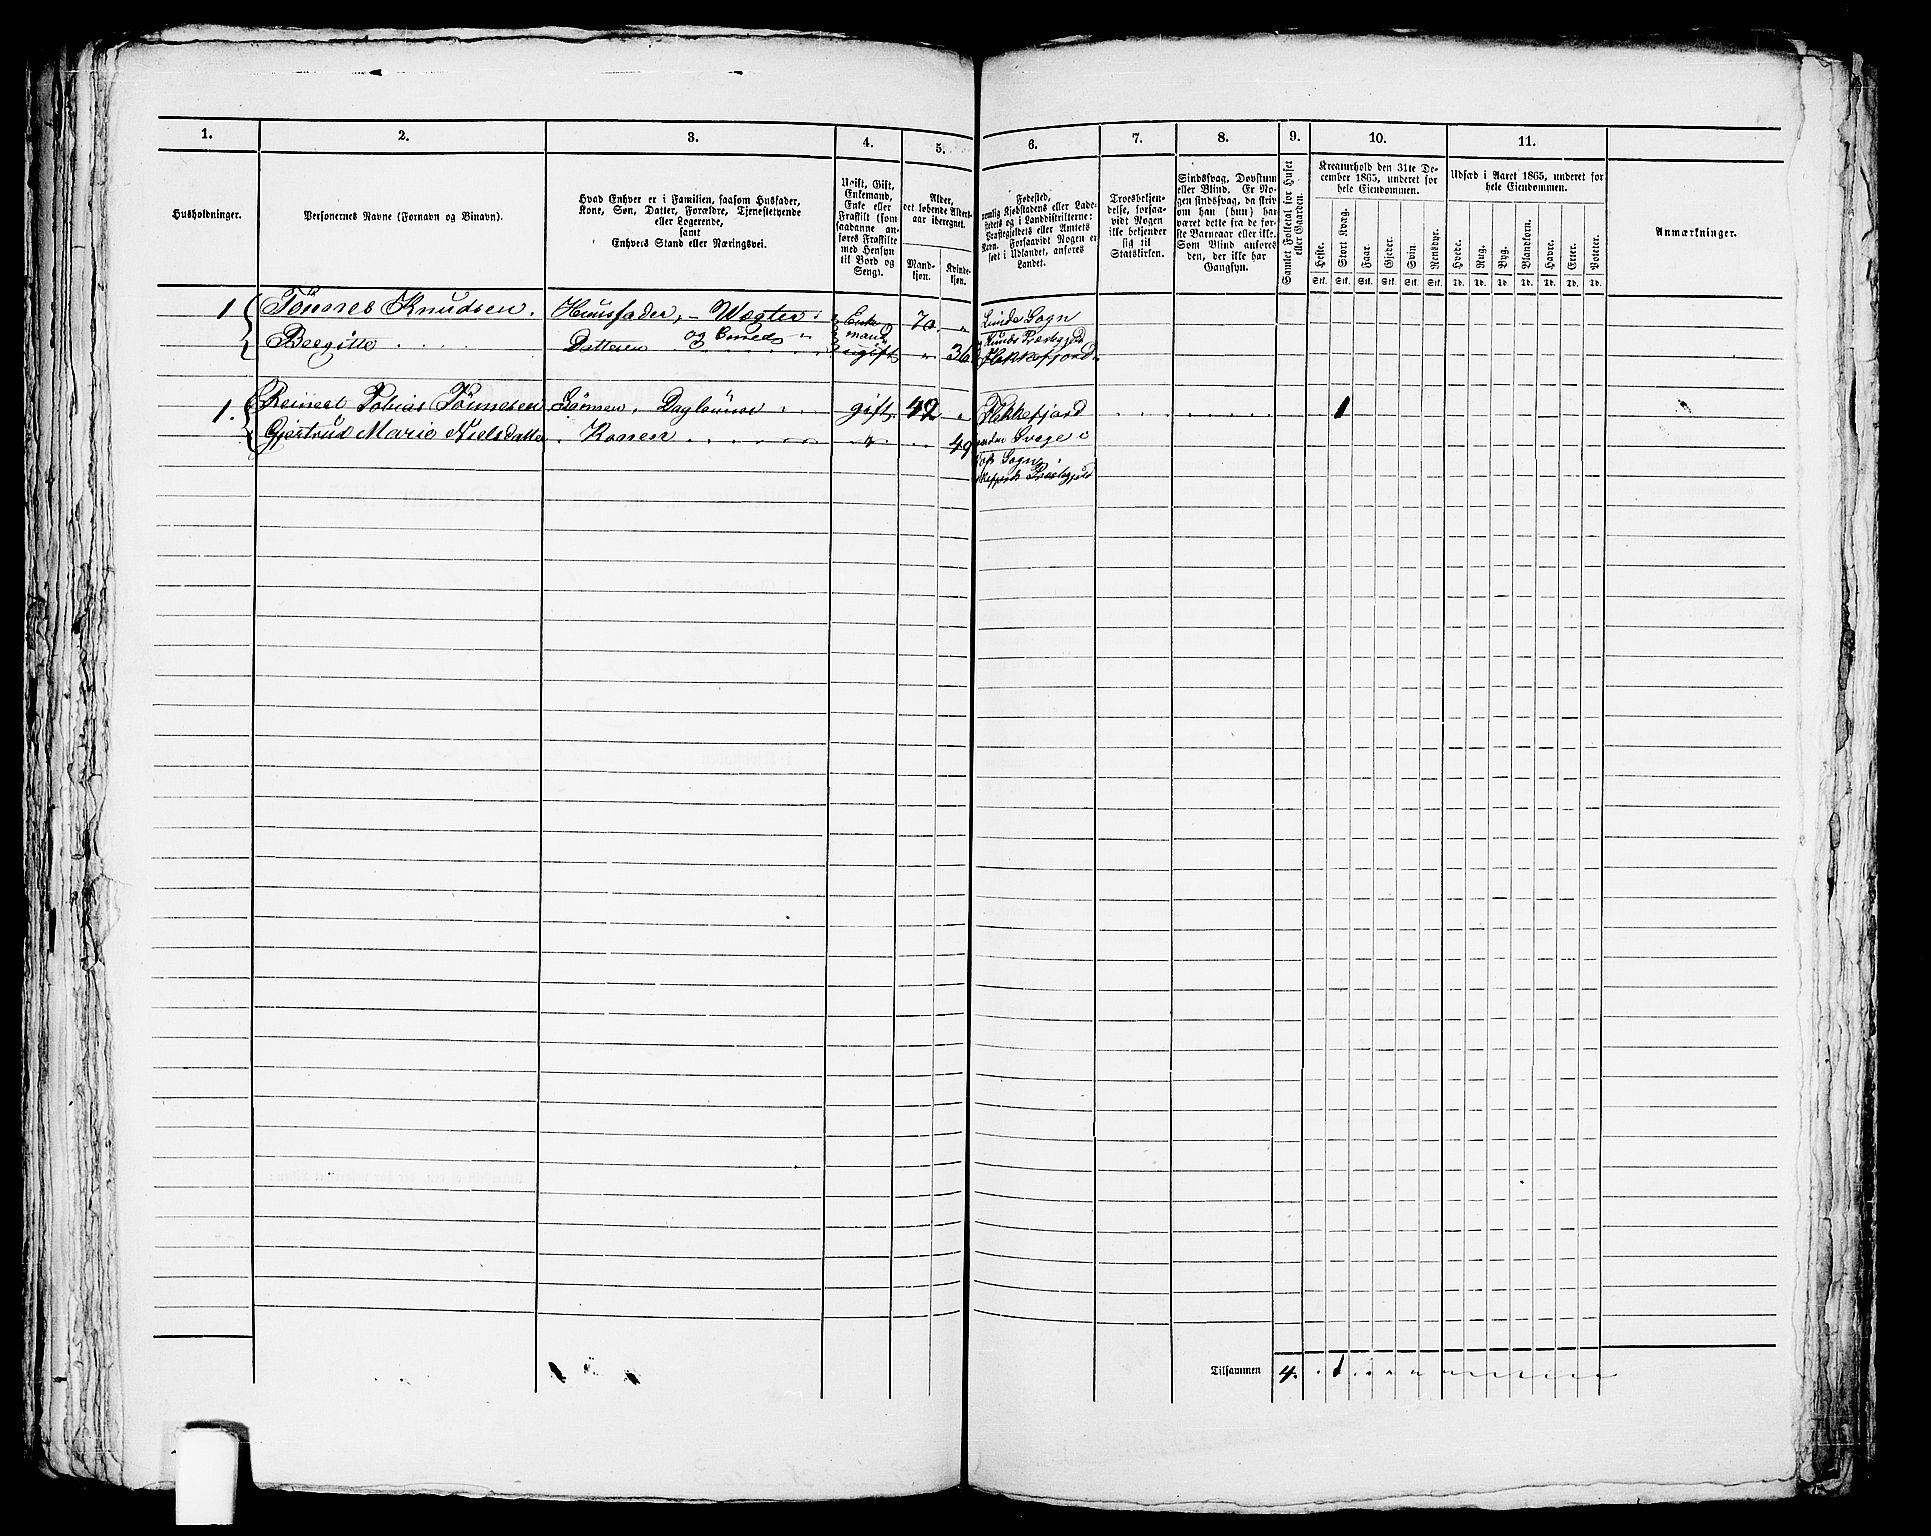 1. 2. 3. 4. 5. 6. 7. 8. 9. 10. 11.
Husholdninger.
Personernes Navne (Fornavn og Binavn).
Hvad Enhver er i Familien, saasom Husfader,
Kone, Søn, Datter, Forældre, Tjenestetyende
eller Logerende,
samt
Enhvers Stand eller Næringsvei.
Ugift, Gift,
Enkemand,
Enke eller
Fraskilt (som
saadanne an-
føres Fraskilte
med Hensyn
til Bord og
Seng).
Alder,
det løbende Alders-
aar iberegnet.
Mand-
kjøn.
Kvinde-
kjøn.
Fødested,
nemlig Kjøbstadens eller Lade-
stedets og i Landdistrikterne:
Præstegjeldets eller Amtets
Navn. Forsaavidt Nogen er
født i Udlandet, anføres
Landet.
Troesbekjen-
delse, forsaa-
vidt Nogen
ikke bekjender
sig til
Statskirken.
Sindssvag, Døvstum
eller Blind. Er No-
gen sindssvag, da skriv
om han (hun) har
været dette fra de før-
ste Barneaar eller ikke.
Som Blind anføres
den, der ikke har
Gangsyn.
Samlet Folketal for Huset
eller Gaarden.
Kreaturhold den 31te De-
cember 1865, underet for
hele Eiendommen.
Heste. Stort Kvæg. Faar. Gjeder. Svin Rensdyr.
Stk. Stk. Stk. Stk. Stk. Stk.
Udsæd i Aaret 1865, underet for
hele Eiendommen.
Hvede. Rug. Byg. Blandkorn. Havre. Erter. Poteter.
Td. Td. Td. Td. Td. Td. Td.
Anmærkninger.
1 Tönnes Knudsen. Huusfader, – Vægter Enke- 70. " Lunde Sogn
og mand Lunds Præstegjeld
Beegitte Datteren ugift " 36 Flekkefjord
1. Reinert Tobias Tönnesen Sönnen, Daglönner gift 42 " Flekkefjord 1
Gjertrud Marie Nielsdatter Konen " 49
Sogn
Præstegjeld
Tilsammen 4. 1